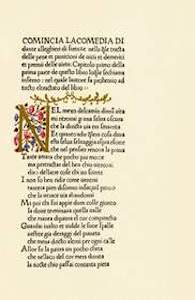 COMINCIA LA COMEDIA DI
dante alleghieri di fiorenze nella qle tracta
delle pene et punitioni de uitii et demeriti
et premii delle uirtu: Capitolo primo della
prima parte de questo libro loqle sechiama
inferno: nel quale lautore fa prohemio ad
tucto eltractato del libro:
NEL mezo delcamin dinra uita
mi trouai puna selua oscura
che la diricta uia era smarrita
Et quanto adir qlera cosa dura
esta selua seluaggia aspra eforte
che nel pensier renoua la paura
Tante amara che pocho piu morte
ma pertractar del ben chio uitrouai
diro dellaltre cose chi uo scorte
I non so ben ridir come uentrai
tantera pien disonno insuquil punto
che la uerace uia abandonai
Ma poi chi fui appie dun colle gionto
la doue terminaua quella ualle
che mauea dipaura el cor compuncto
Guardai inalto et uidde le sue spalle
uestite gia deraggi del pianeta
che mena dricto altrui per ogni calle
Allor fu la paura un pocho cheta
che nellaco del cor mera durata
la nocte chio passai contanta pieta